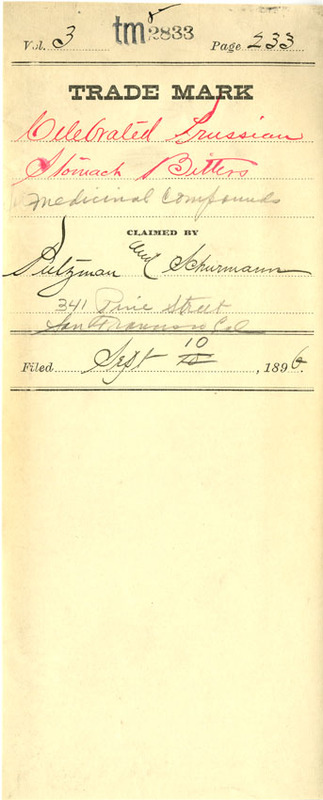 Vol. 3 tm 2833 Page 233
TRADE MARK
Celebrated Prussian
Stomach Bitters
Medicinal Compounds
CLAIMED BY
and Schurmann
341 Pine Street
San Francisco Cal
Filed Sept 10, 1896.